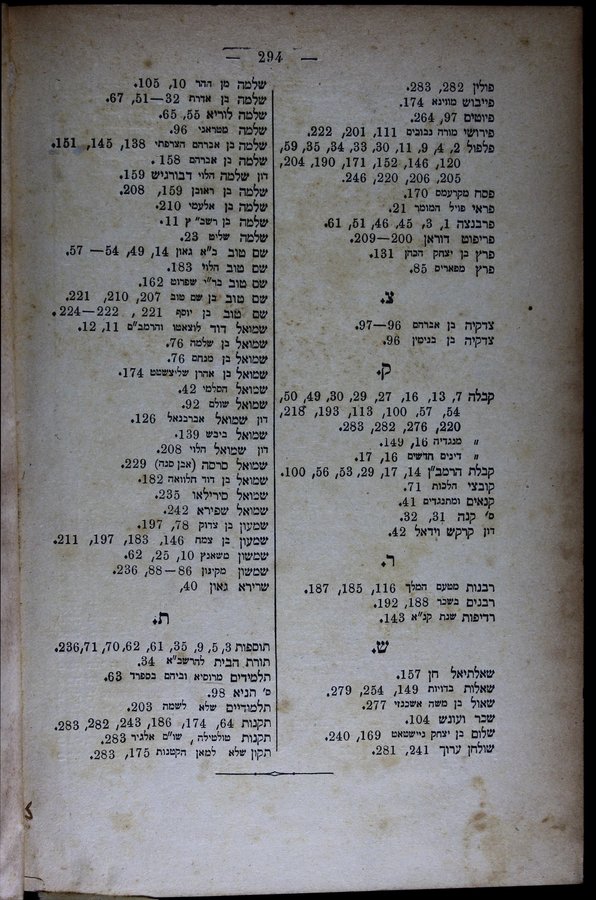 — 294 —
פולין 282, 283.
פייבוש מווינא 174.
פיוטים 97, 264.
פירושי מורה נבוכים 111, 201, 222.
פלפול 2, 4, 9, 11, 30, 33, 34, 35, 59,
120, 146, 152, 171, 190, 204,
205, 206, 220, 246.
פסח מקרעמס 170.
פראי פויל המומר 21.
פרבנצה 1, 3, 45, 46, 51, 61.
פריפוט דוראן 200—209.
פרץ בן יצחק הכהן 131.
פרץ מפאריס 85.
צ.
צדקיה בן אברהם 96—97.
צדקיה בן בנימין 96.
ק.
קבלה 7, 13, 16, 27, 29, 30, 49, 50,
54, 57, 100, 113, 193, 218,
220, 276, 282, 283.
„ מנגדיה 16, 149.
„ דינים חדשים 16, 17.
קבלת הרמב"ן 14, 17, 29, 53, 56, 100.
קובצי הלכות 71.
קנאים ומתנגדים 41.
ס' קנה 31, 32.
דון קרקש וידאל 42.
ר.
רבנות מטעם המלך 116, 185, 187.
רבנים בשכר 188, 192.
רדיפות שנת קנ"א 143.
ש.
שאלתיאל חן 157.
שאלות בדויות 149, 254, 279.
שאול בן משה אשכנזי 277.
שכר ועונש 104.
שלום בן יצחק ניישטאט 169, 240.
שולחן ערוך 241, 281.
שלמה מן ההר 10, 105.
שלמה בן אדרת 32—51, 67.
שלמה לוריא 55, 65.
שלמה מטראני 96.
שלמה בן אברהם הצרפתי 138, 145, 151.
שלמה בן אברהם 158.
דון שלמה הלוי דבורגיש 159.
שלמה בן ראובן 159, 208.
שלמה בן אלעמי 210.
שלמה בן רשב"ץ 11.
שלמה שליט 23.
שם טוב ב"א גאון 14, 49, 54—57.
שם טוב הלוי 183.
שם טוב בר"י שפרוט 162.
שם טוב בן שם טוב 207, 210, 221.
שם טוב בן יוסף 221, 222—224.
שמואל דוד לוצאטו והרמב"ם 11, 12.
שמואל בן שלמה 76.
שמואל בן מנחם 76.
שמואל בן אהרן שליצשטט 174.
שמואל הסלמי 42.
שמואל שולם 92.
דון שמואל אברבנאל 126.
שמואל ביבש 139.
דון שמואל הלוי 208.
שמואל סרסה (אבן סנה) 229.
שמואל בן דוד חלוואה 182.
שמואל סירילאו 235.
שמואל שפירא 242.
שמעון בן צדוק 78, 197.
שמעון בן צמח 146, 183, 197, 211.
שמשון משאנץ 10, 25, 62.
שמשון מקינון 86—88, 236.
שרירא גאון 40,
ת.
תוספות 3, 5, 9, 35, 61, 62, 70, 71, 236.
תורת הבית להרשב"א 34.
תלמידים מרוסיא וביהם בספרד 63.
ס' תניא 98.
תלמודיים שלא לשמה 203.
תקנות 64, 174, 186, 243, 282, 283.
תקנות טולטילה, שו"ם אלגיר 283.
תקון שלא למאן הקטנות 175, 283.